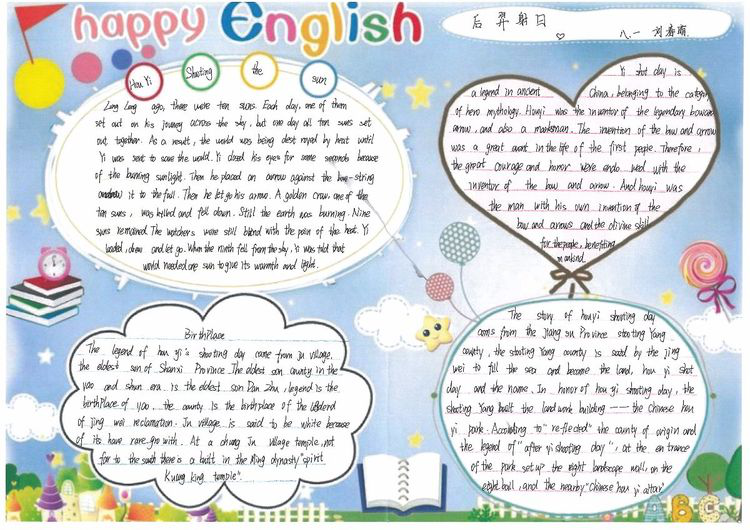 happy English
后羿射日
八.一 刘春雨
Hou Yi Shooting the sun
Long Long ago, there were ten suns. Each day, one of them
set out on his journey across the sky, but one day all ten suns set
out together. As a result, the world was being destroyed by heat until
Yi was sent to save the world. Yi closed his eyes for some seconds because
of the burning sunlight. Then he placed an arrow against the bow-string
it to the full. Then he let go his arrow. A golden crow, one of the
ten suns, was killed and fell down. Still the earth was burning. Nine
suns remained. The watchers were still blind with the pain of the heat. Yi
loaded, drew and let go. When the ninth fell from the sky, Yi was told that
world needed one sun to give its warmth and light.
Yi shot day is
a legend in ancient China, belonging to the category
of hero mythology. Houyi was the inventor of the legendary bow and
arrow, and also a marksman. The invention of the bow and arrow
was a great event in the life of the first people. Therefore,
the great courage and honor were endo wed with the
inventor of the bow and arrow. And houyi was
the man with his own invention of the
bow and arrows and the divine skill
for the people, benefiting
mankind.
BirthPlace
The legend of hou yi's shooting day came from Ju village,
the eldest son of Shanxi Province. The eldest son county in the
yao and shun era is the eldest son Dan Zhu, legend is the
birthplace of yao. the county is the birthplace of the legend
of jing wei reclamation. Ju village is said to be white because
of its have rare gro with. At a chung Ju village temple, not
far to the south there is a built in the Ming dynasty "spirit
Kuang king temple".
The story of houyi shooting day
coms from the Jiang su Province shooting Yang
county, the shooting Yang county is said by the jing
wei to fill the sea and become the land, hou yi shot
day and the name. In honor of hou yi shooting day, the
shooting Yang built the land work building —— the Chinese hou
yi park. According to "reflected" the county of origin and
the legend of "after yi shooting day", at the en trance
of the park set up the eight landscape wall, on the
eight ball, and the nearby "Chinese hou yi altar".
ABC